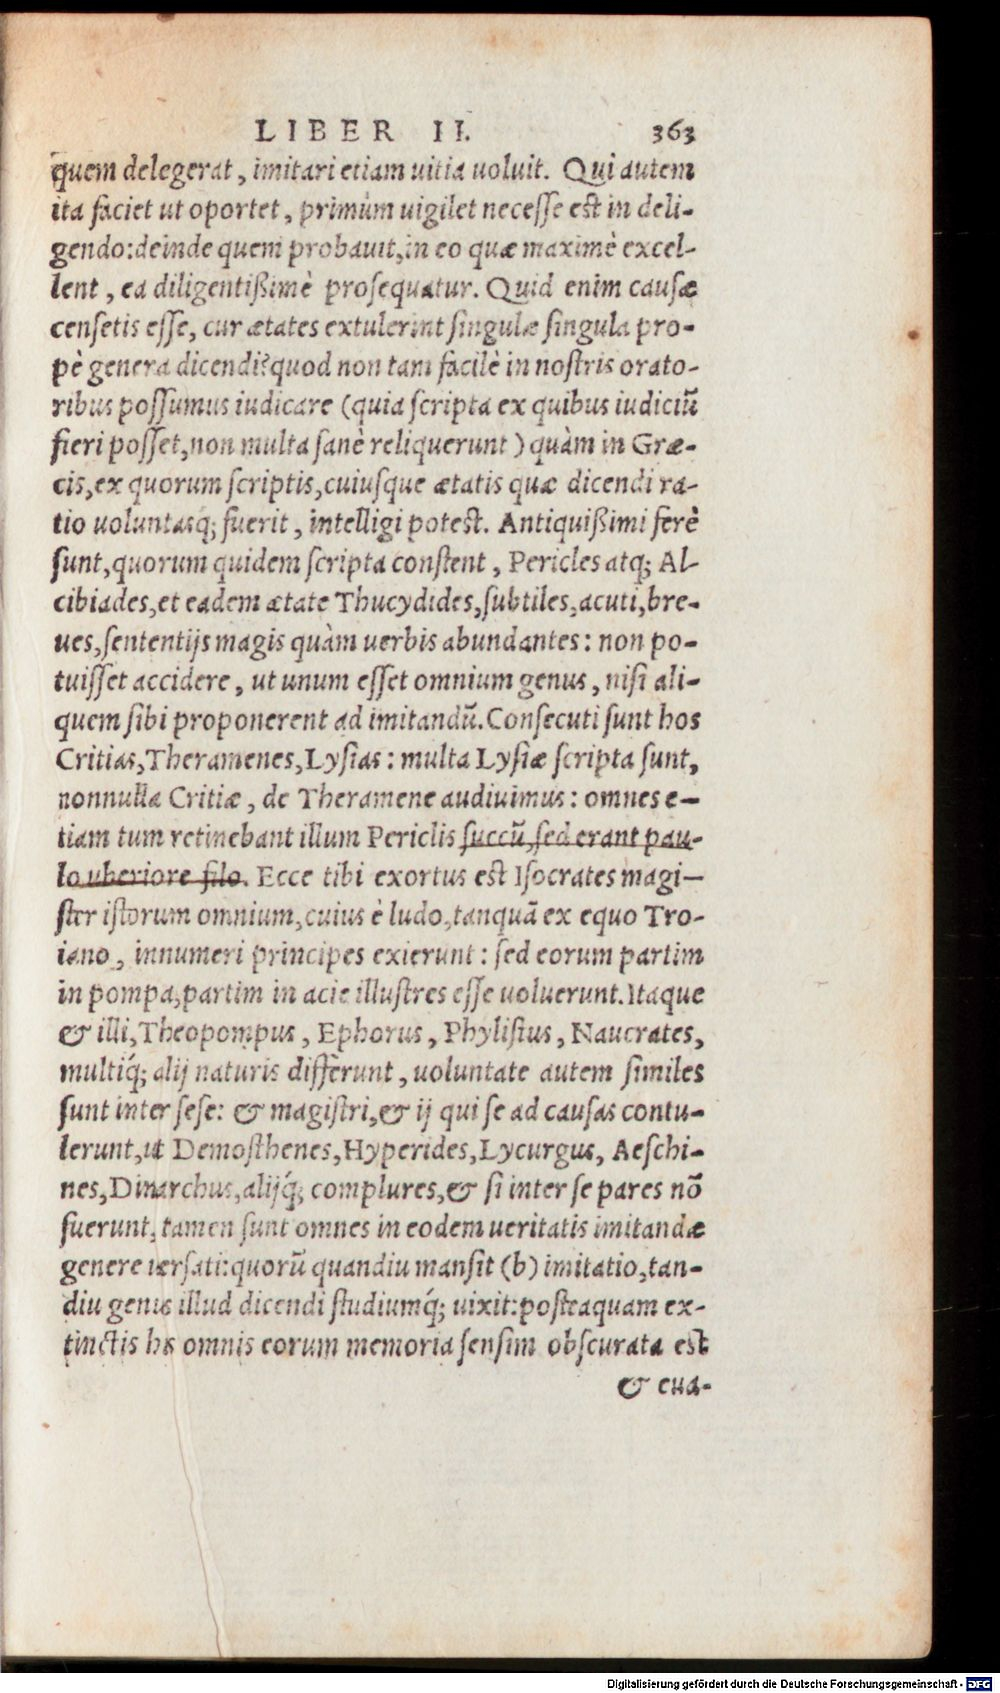 LIBER II. 363
quem delegerat, imitari etiam uitia uoluit. Qui autem
ita faciet ut oportet, primùm uigilet necesse est in deli-
gendo: deinde quem probauit, in eo quæ maximè excel-
lent, ea diligentißimè prosequatur. Quid enim causæ
censetis esse, cur ætates extulerint singulæ singula pro-
pè genera dicendi? quod non tam facilè in nostris orato-
ribus possumus iudicare (quia scripta ex quibus iudiciũ
fieri posset, non multa sanè reliquerunt) quàm in Græ-
cis, ex quorum scriptis, cuiusque ætatis quæ dicendi ra-
tio uoluntasq; fuerit, intelligi potest. Antiquißimi ferè
sunt, quorum quidem scripta constent, Pericles atq; Al-
cibiades, et eadem ætate Thucydides, subtiles, acuti, bre-
ues, sententijs magis quàm uerbis abundantes: non po-
tuisset accidere, ut unum esset omnium genus, nisi ali-
quem sibi proponerent ad imitandũ. Consecuti sunt hos
Critias, Theramenes, Lysias: multa Lysiæ scripta sunt,
nonnulla Critiæ, de Theramene audiuimus: omnes e-
tiam tum retinebant illum Periclis succũ, sed erant pau-
lo uberiore filo. Ecce tibi exortus est Isocrates magi-
ster istorum omnium, cuius è ludo, tanquã ex equo Tro-
iano, innumeri principes exierunt: sed eorum partim
in pompa, partim in acie illustres esse uoluerunt. Itaque
& illi, Theopompus, Ephorus, Phylistus, Naucrates,
multiq́; alij naturis differunt, uoluntate autem similes
sunt inter sese: & magistri, & ij qui se ad causas contu-
lerunt, ut Demosthenes, Hyperides, Lycurgus, Aeschi-
nes, Dinarchus, alijq́; complures, & si inter se pares nõ
fuerunt, tamen sunt omnes in eodem ueritatis imitandæ
genere uersati: quorũ quandiu mansit (b) imitatio, tan-
diu genus illud dicendi studiumq́; uixit: posteaquam ex-
tinctis his omnis eorum memoria sensim obscurata est
& eua-
Digitalisierung gefördert durch die Deutsche Forschungsgemeinschaft - DFG